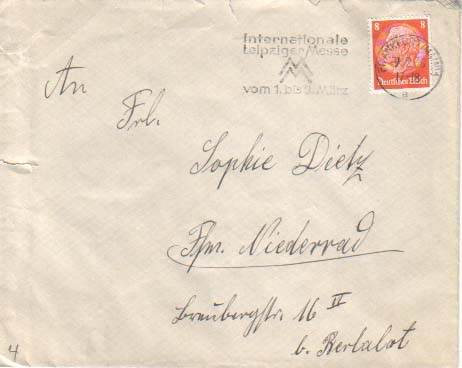 Internationale
Leipziger Messe
vom 1. bis 9. März
8 8
Deutsches Reich
An
Frl.
Sophie Dietz
Ffm. Niederrad
Breubergstr. 16 II
b. Bertalot
4